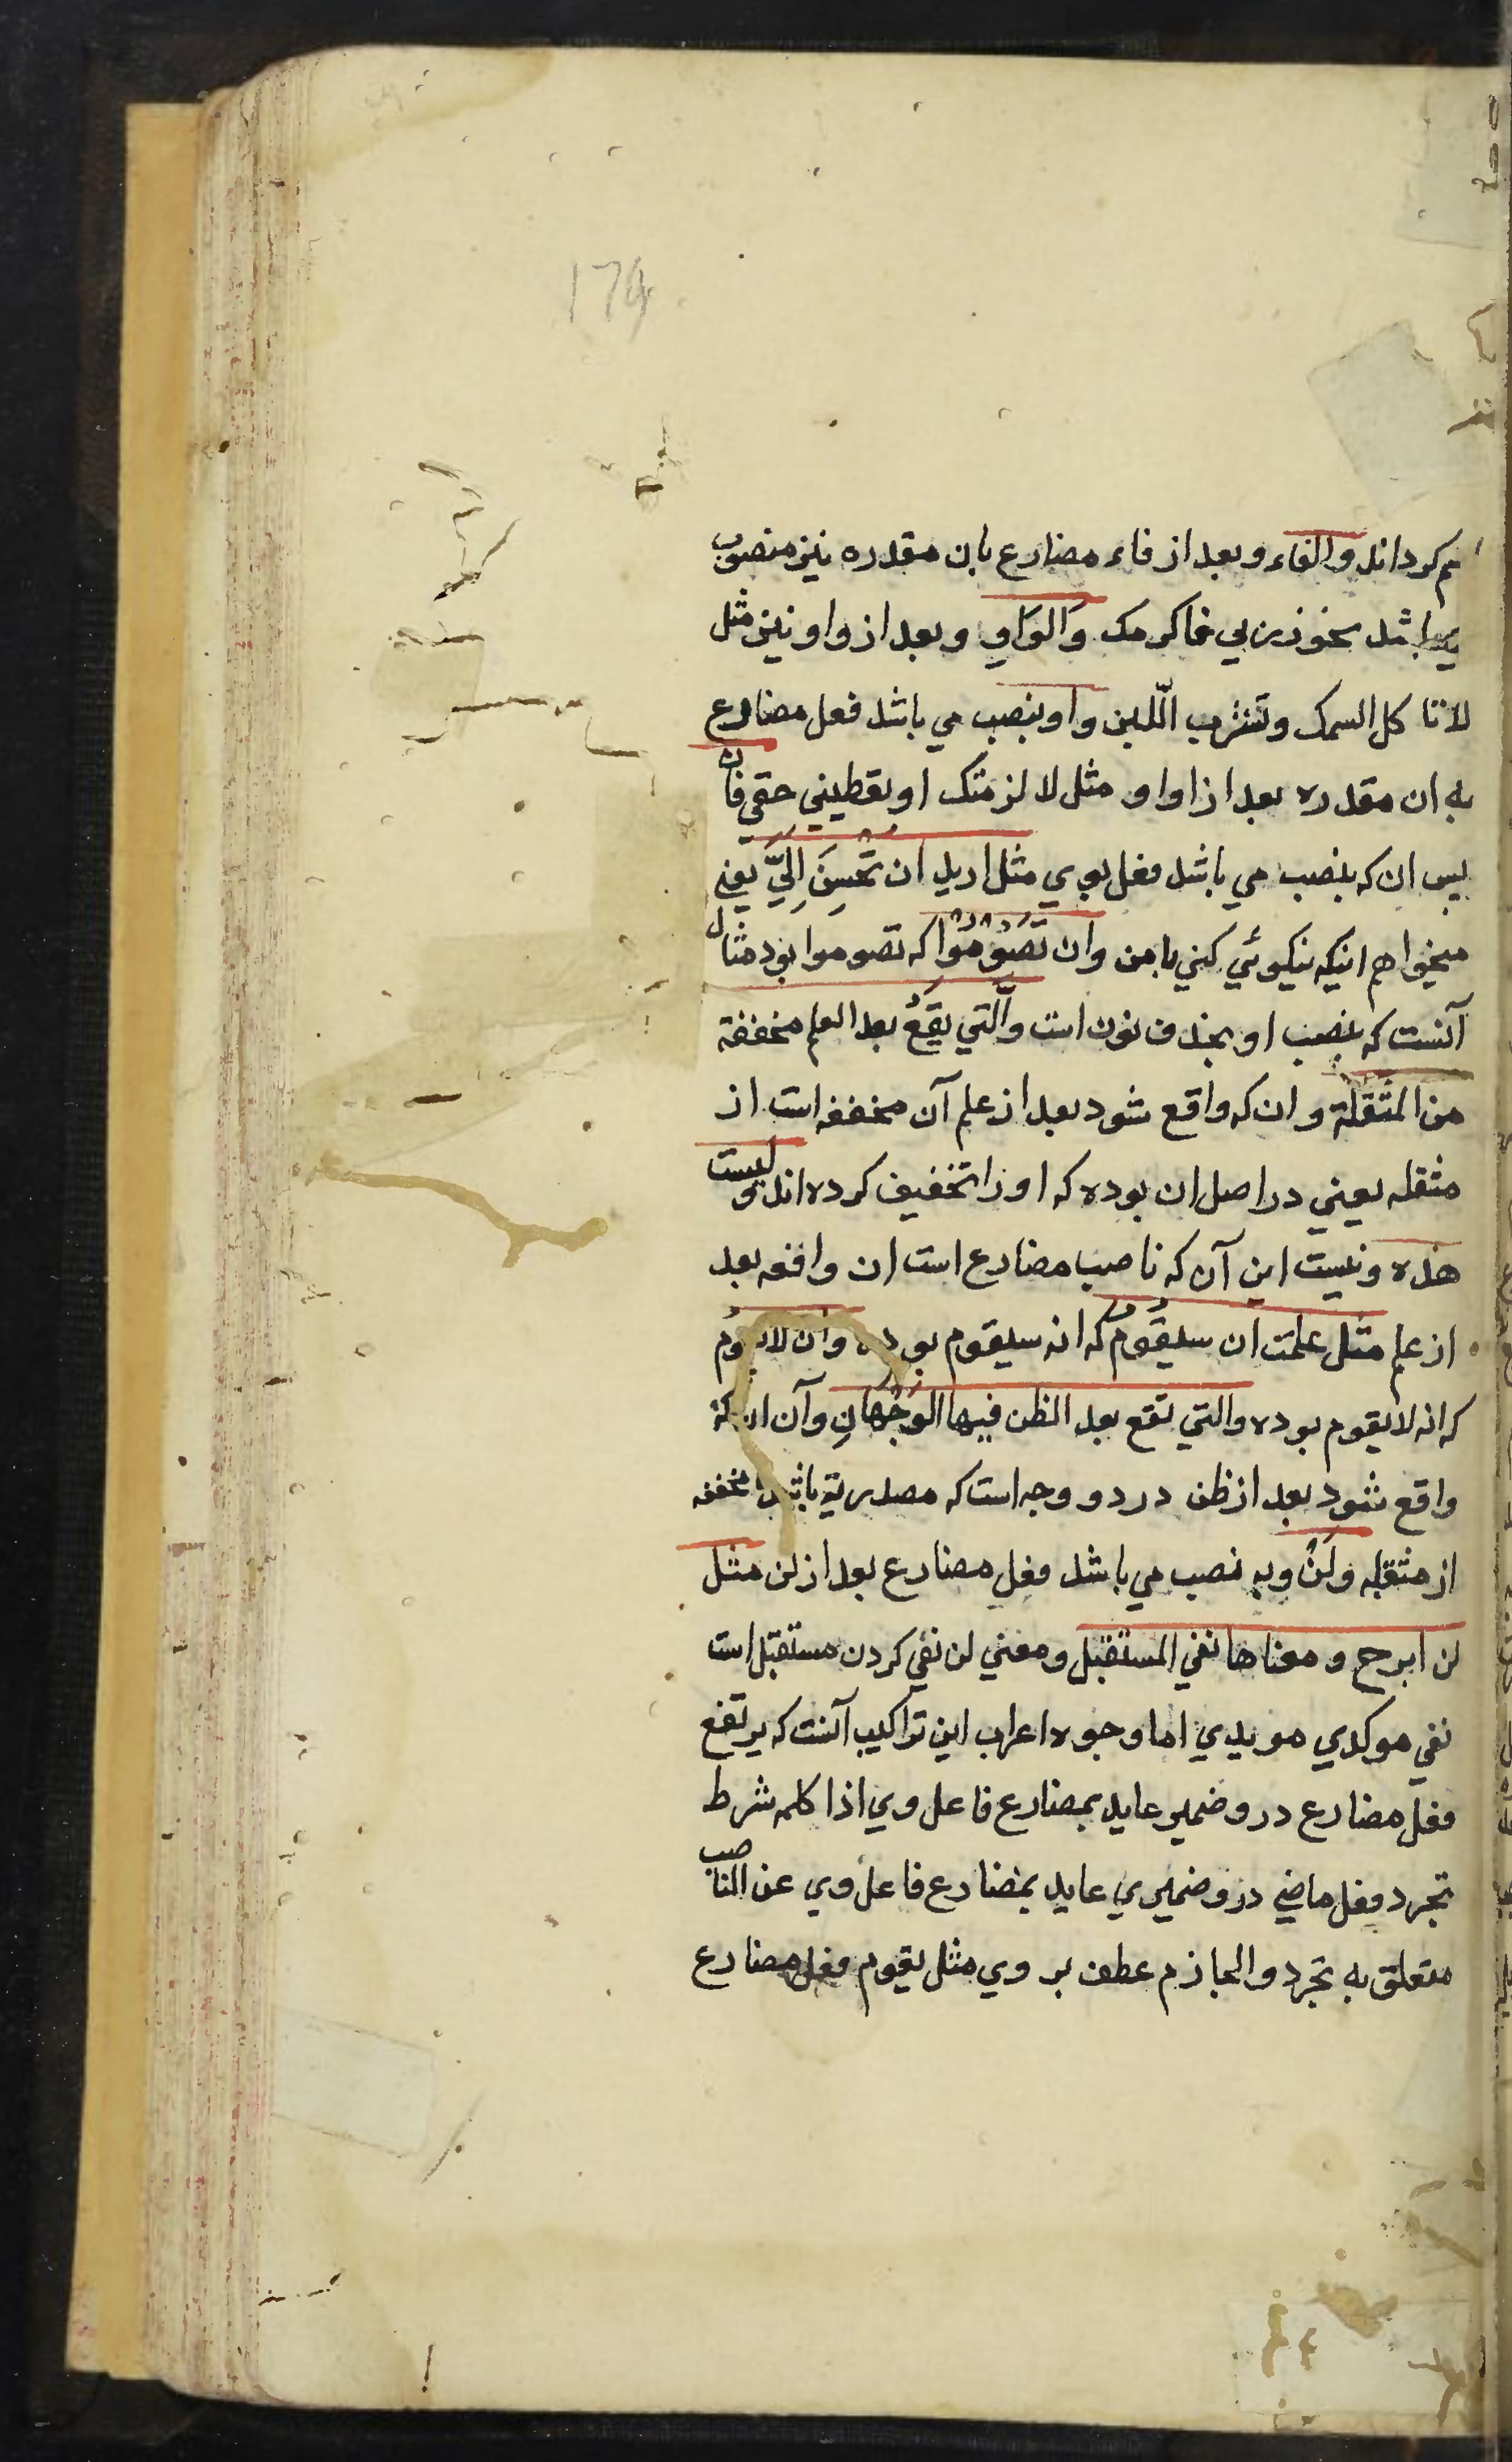 174
كرداند والفاء و بعد از فاء مضارع بان مقدره نيز منصوب
باشد نحو زرني فاكرمك والواوِ و بعد از واو نيز مثل
لا تاكل السمك و تشرب اللّبن واو بنصب مي باشد فعل مضارع
به ان مقدره بعد از او او مثل لا لزمتك او تعطيني حقي فان
پس ان كه بنصب مي باشد فعل بوي مثل اريد ان تحسنَ اليّ يعني
ميخواهم اينكه نيكوئي كني با من وان تَصُوْمُوْا كه تصوموا بود مثال
آنست كه بنصب او بحذف نون است والّتي تقعُ بعد العلم مخففة
من المثقلة و ان كه واقع شود بعد از علم آن مخففه است از
مثقله يعني در اصل ان بوده كه او را تخفيف كرده اند وليست
هذه و نيست اين آن كه ناصب مضارع است ان واقعه بعد
از علم مثل علمت ان سيقُومُ كه انه سيقوم بوده وان لا يقومُ
كه انه لا يقوم بوده والتي تقع بعد الظن فيها الوَجْهَانِ و آن ان كه
واقع شود بعد از ظن در دو وجه است كه مصدرية باشد مخففه
از مثقله ولَنْ و به نصب مي باشد فعل مضارع بعد از لن مثل
لن ابرح و معناها نفي المستقبل و معني لن نفي كردن مستقبل است
نفي موكدي مويدي اما وجوه اعراب اين تراكيب آنست كه يرتفع
فعل مضارع در و ضمير عايد بمضارع فاعل وي اذا كلمه شرط
تجرد فعل ماضي در و ضميري عايد بمضارع فاعل وي عن الناصب
متعلق به تجرد والجازم عطف بر وي مثل يقوم فعل مضارع